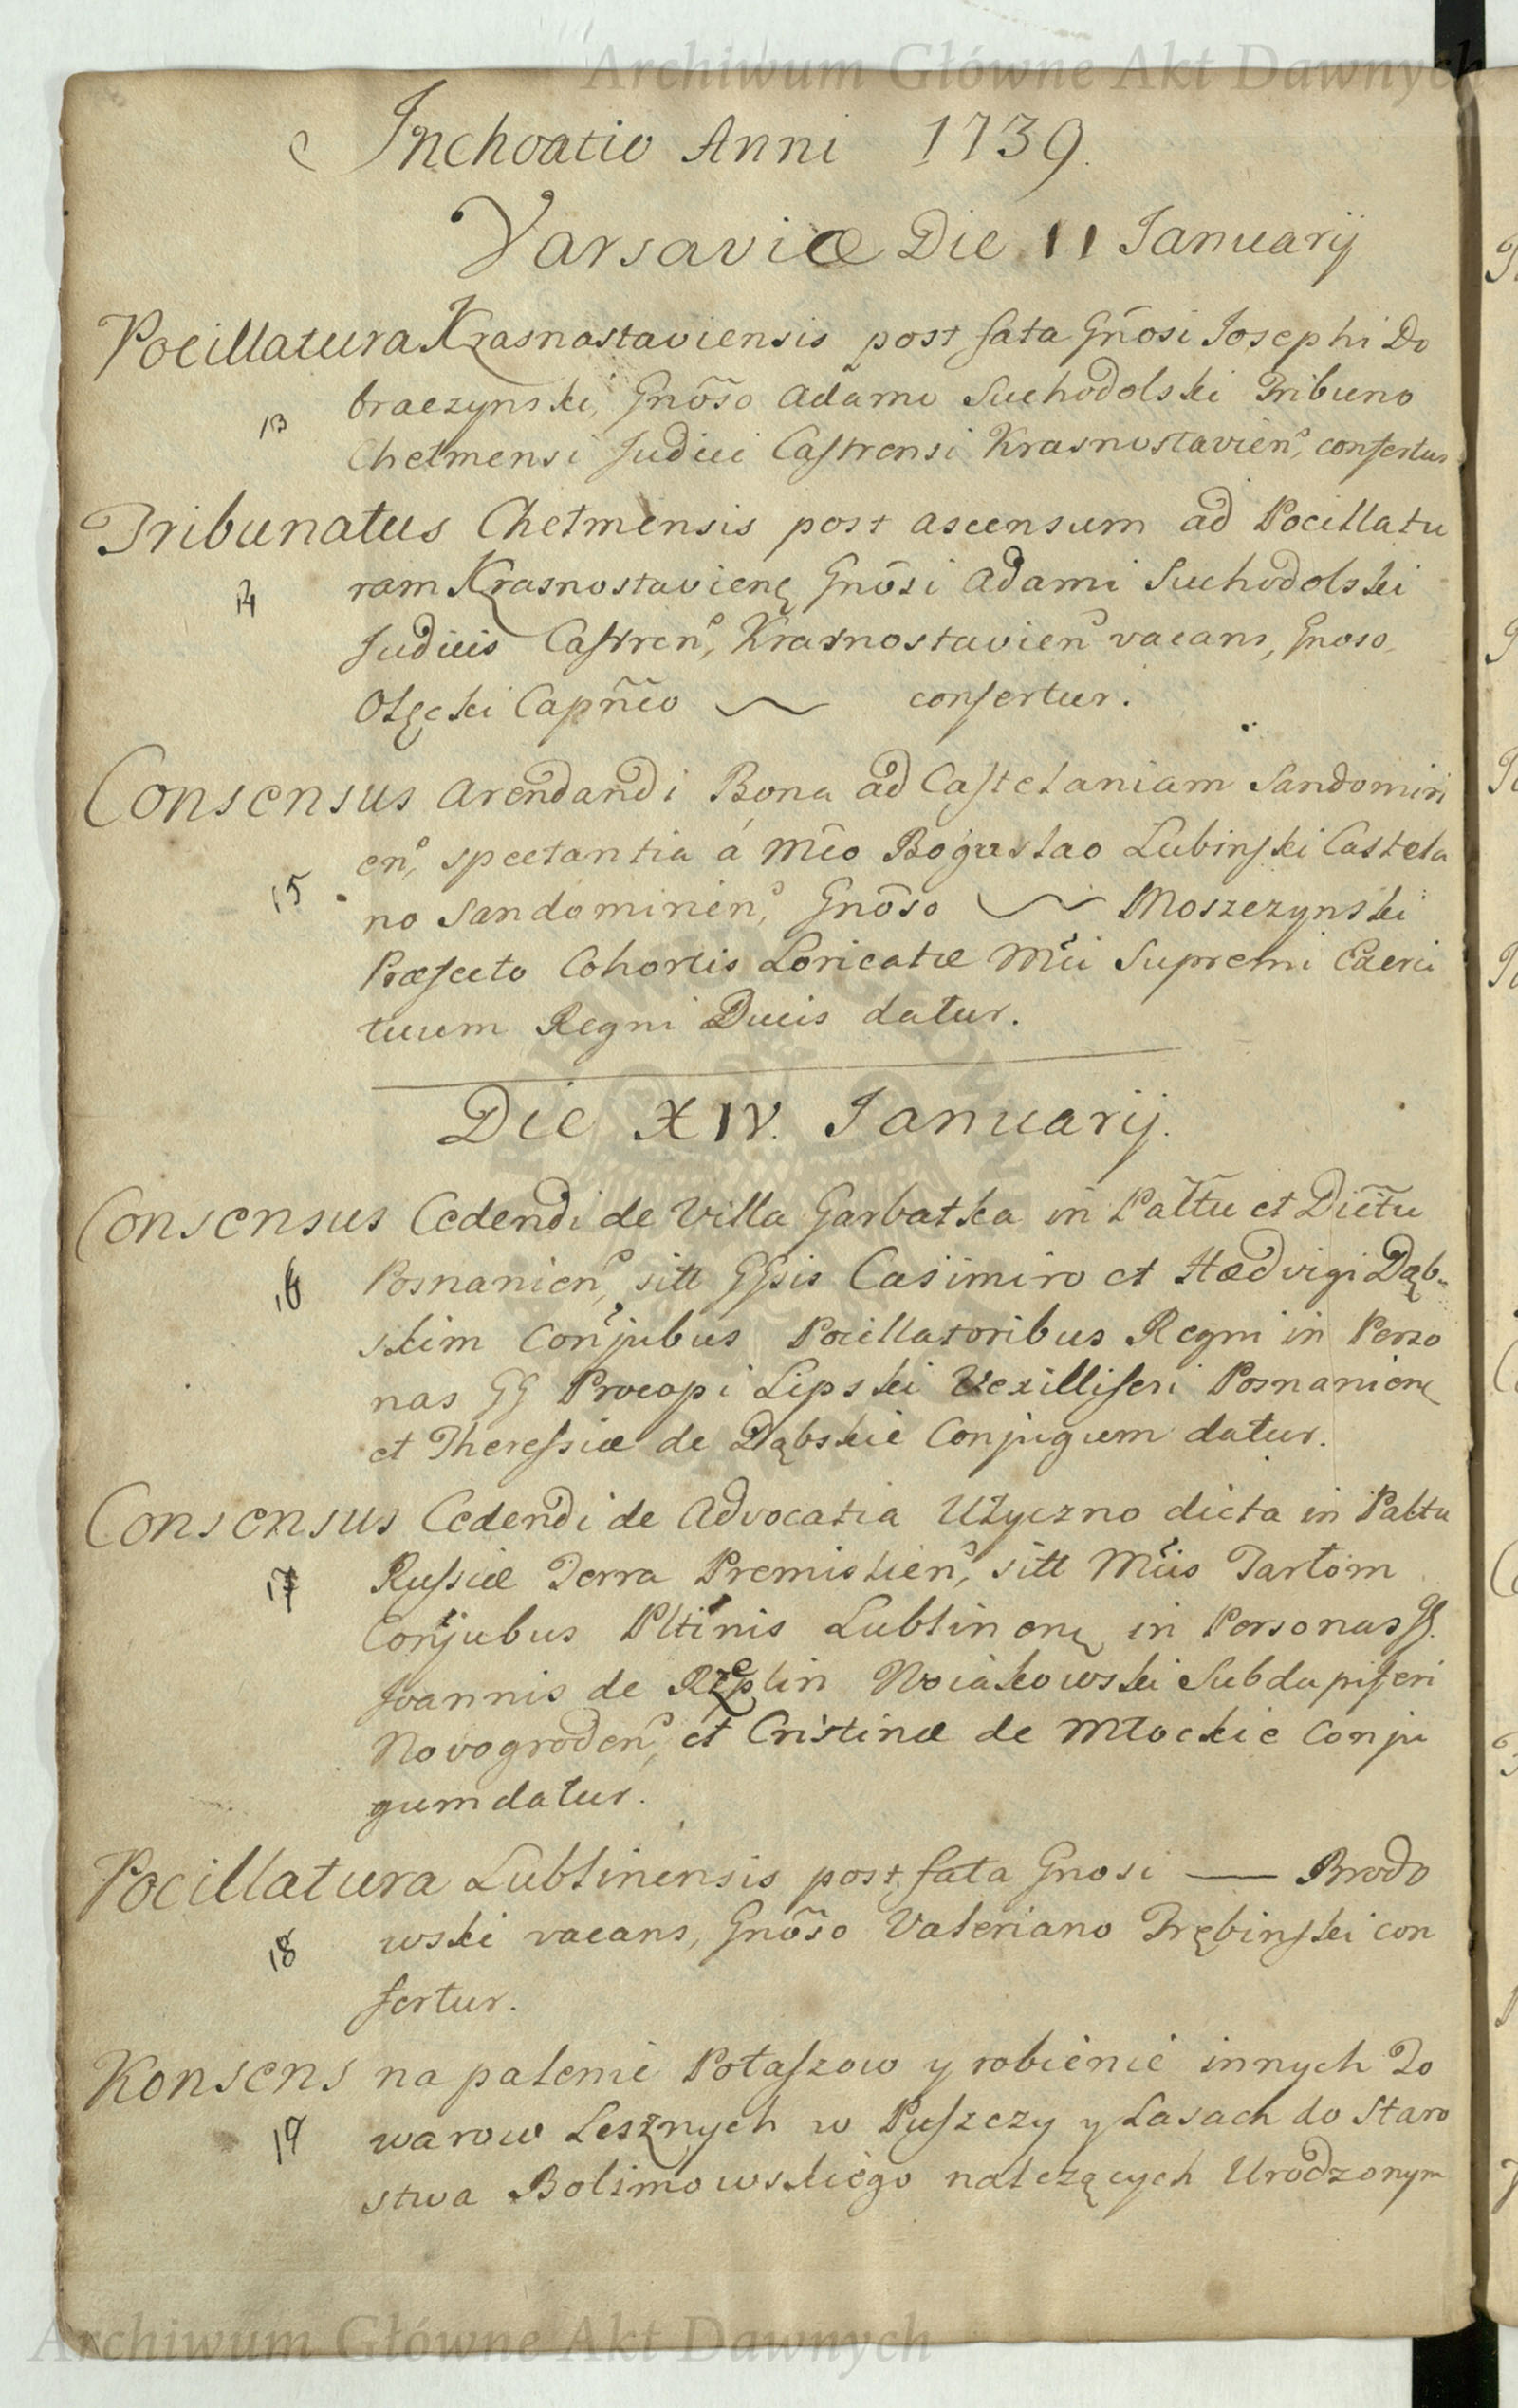 Archiwum Główne Akt Dawnych
Inchoatio Anni 1739.
Varsaviæ Die 11 Januarij
Pocillatura Krasnostaviensis post fata Gñosi Josephi Do
braczynski, Gnõso Adamo Suchodolski Tribuno
13
Chelmensi Judici Castrensi Krasnostavien, confertur
Tribunatus Chelmensis post ascensum ad Pocillatu
14
ram Krasnostavien Gnõsi Adami Suchodolski
Judicis Castren, Krasnostavien vacans, Gnoso
Olęcki Capñeo ~ confertur.
Consensus Arendandi Bona ad Castelaniam Sandomiri
en, spectantia á Mco Boguslao Lubinski Castela
15
no Sandomirien, Gnõso ~ Moszczynski
Præfecto Cohortis Loricatæ Mci Supremi Exerci
tuum Regni Ducis datur.
Die XIV. Januarij.
Consensus Cedendi de Villa Garbatka in Paltu et Dictu
16
Posnanien, sitt GGsis Casimiro et Hædvigi Dąb-
skim Conjubus Pocillatoribus Regni in Perso
nas GG Procopi Lipski Vexilliferi Posnanien
et Theressiæ de Dąbskie Conjugum datur.
Consensus Cedendi de Advocatia Użyczno dicta in Paltu
17
Russiæ Terra Premislien, sitt Mcis Tarłom
Conjubus Pltinis Lublinen in Personas GG.
Joannis de Rzeplin Woiakowski Subdapiferi
Novogroden, et Cristinæ de Młockie Conju
gum datur.
Pocillatura Lublinensis post fata Gnosi — Brodo
18
wski vacans, Gnõso Valeriano Trębinski con
fertur.
Konsens na palenie Potaszow y robienie innych To
19
warow Lesznych w Puszczy y Lasach do Staro
stwa Bolimowskiego należących Urodzonym
Archiwum Główne Akt Dawnych